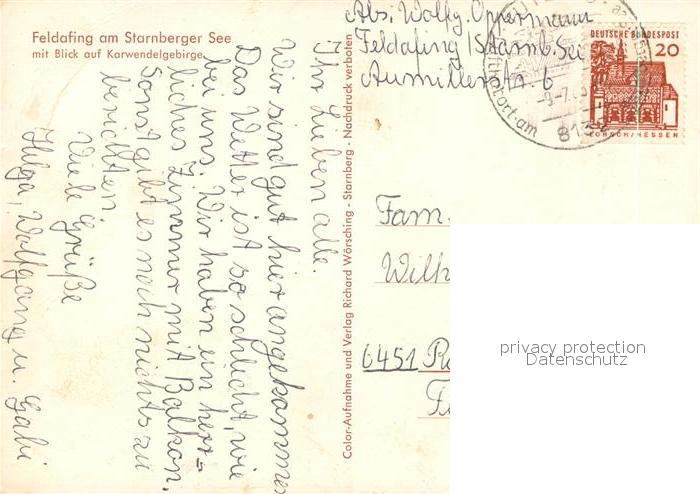 Feldafing am Starnberger See
mit Blick auf Karwendelgebirge
Ihr Lieben alle.
Wir sind gut hier angekommen
Das Wetter ist so schlecht, wie
bei uns. Wir haben ein herr=
liches Zimmer mit Balkon.
Sonst gibt es noch nichts zu
berichten.
Viele Grüße
Helga, Wolfgang u. Gabi
Color-Aufnahme und Verlag Richard Wörsching - Starnberg - Nachdruck verboten
Abs. Wolfg. Oppermann
Feldafing /Starnb. See
Aumillerstr. 6
DEUTSCHE BUNDESPOST
20
LORSCH/HESSEN
813
Fam.
Wilh
6451
privacy protection
Datenschutz